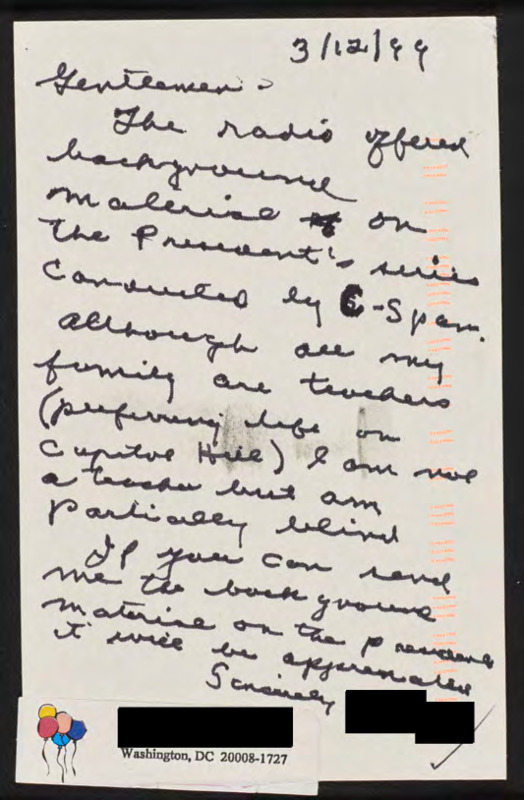 3/12/99
Gentlemen -
The radio offered
background
material on
the President's series
conducted by C-Span.
Although all my
family are teachers
(preferring life on
Capitol Hill) I am not
a teacher but am
partically blind
If you can send
me the background
material on the president
it will be appreciated
Sincerely
Washington, DC 20008-1727